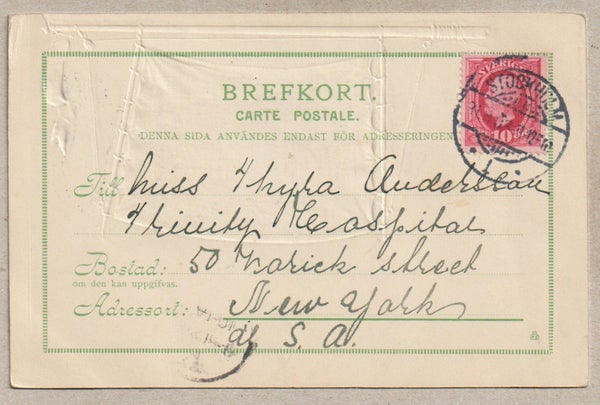 BREFKORT.
CARTE POSTALE.
DENNA SIDA ANVÄNDES ENDAST FÖR ADRESSERINGEN
SVERIGE
10
Till Miss Thyra Anderson
Trinity Hospital
Bostad: 50 Varick street
om den kan uppgifvas.
Adressort: New York
U. S. A.